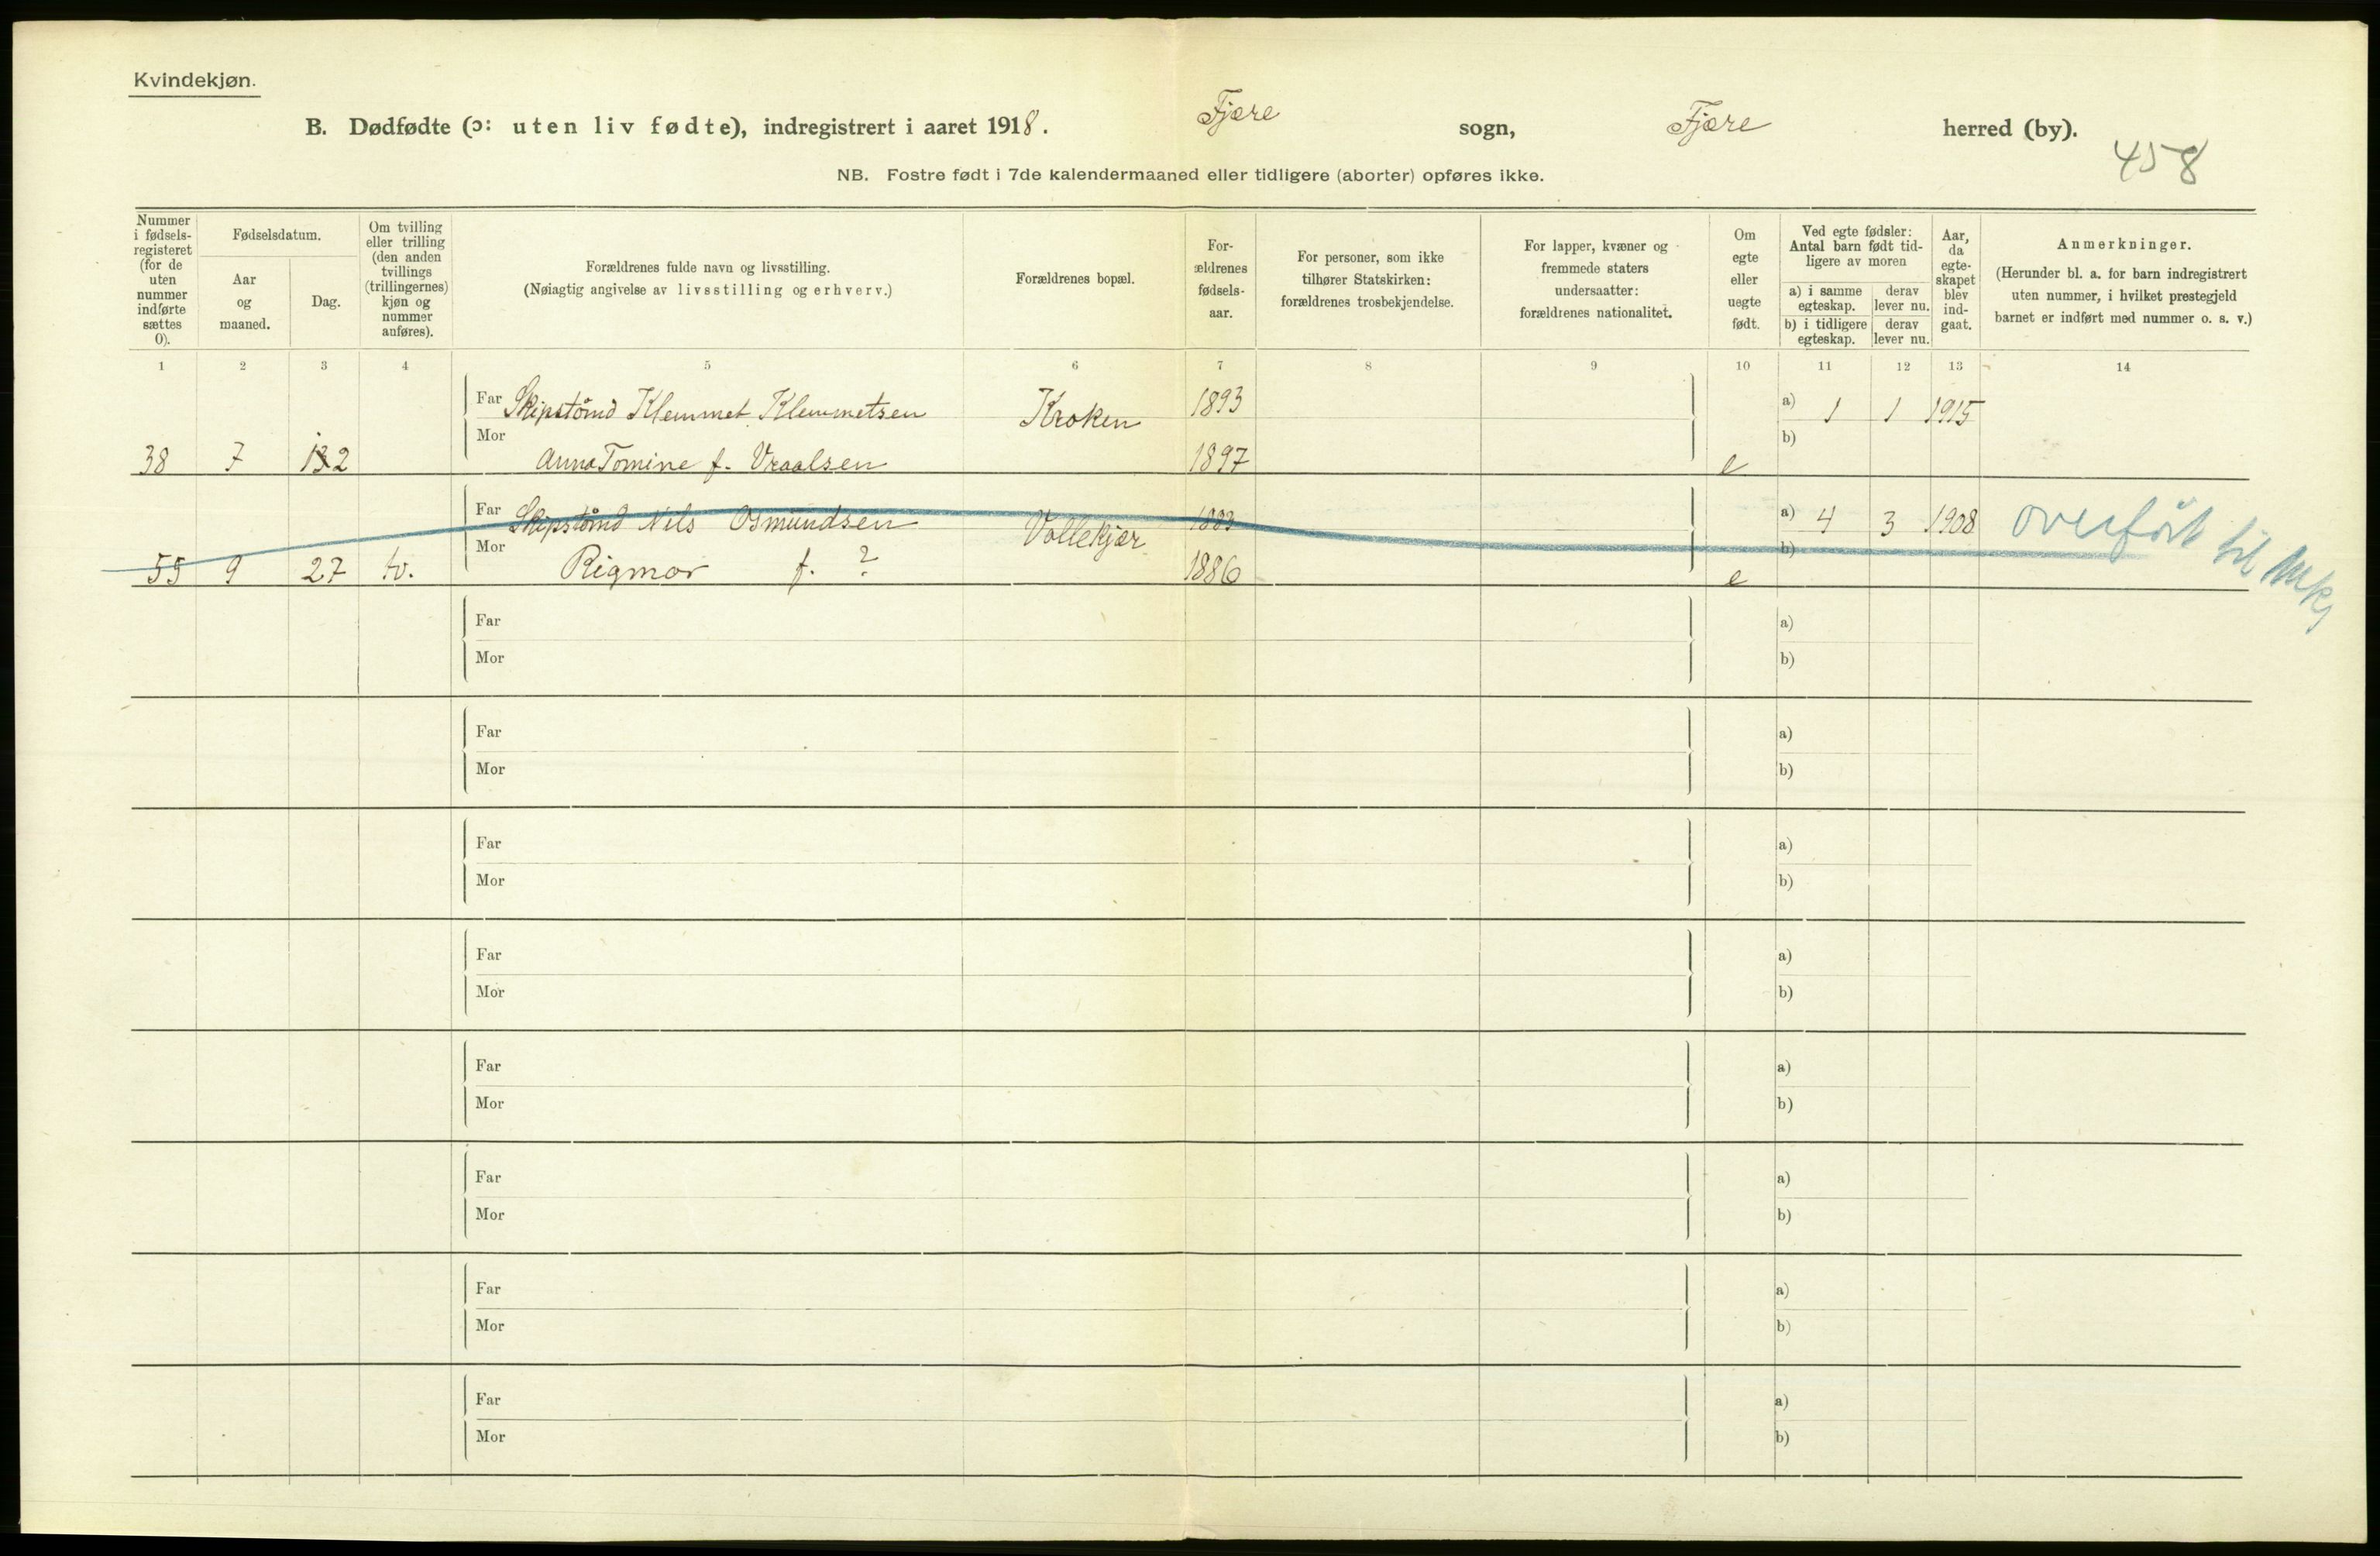 Kvindekjøn.
B. Dødfødte (ɔ: uten liv fødte), indregistrert i aaret 1918. Fjære sogn, Fjære herred (by).
458
NB. Fostre født i 7de kalendermaaned eller tidligere (aborter) opføres ikke.
Nummer i fødsels-registeret (for de uten nummer indførte sættes 0).
Fødselsdatum.
Aar og maaned.
Dag.
Om tvilling eller trilling (den anden tvillings (trillingernes) kjøn og nummer anføres).
Forældrenes fulde navn og livsstilling.
(Nøiagtig angivelse av livsstilling og erhverv.)
Forældrenes bopæl.
For-ældrenes fødsels-aar.
For personer, som ikke tilhører Statskirken: forældrenes trosbekjendelse.
For lapper, kvæner og fremmede staters undersaatter: forældrenes nationalitet.
Om egte eller uegte født.
Ved egte fødsler: Antal barn født tid-ligere av moren
a) i samme egteskap. derav lever nu.
b) i tidligere egteskap. derav lever nu.
Aar, da egte-skapet blev ind-gaat.
Anmerkninger.
(Herunder bl. a. for barn indregistrert uten nummer, i hvilket prestegjeld barnet er indført med nummer o. s. v.)
1 2 3 4 5 6 7 8 9 10 11 12 13 14
Far Skipstømd Klemmet Klemmetsen Kroken 1893 a) 1 1 1915
Mor b)
38 7 2 Anna Tomine f. Vraalsen 1897 e
Far Skipstømd Nils Osmundsen Vollekjær 1883 a) 4 3 1908 overført til
Mor b)
55 9 27 tv. Rigmor f. ? 1886 e
Far a)
Mor b)
Far a)
Mor b)
Far a)
Mor b)
Far a)
Mor b)
Far a)
Mor b)
Far a)
Mor b)
Far a)
Mor b)
Far a)
Mor b)